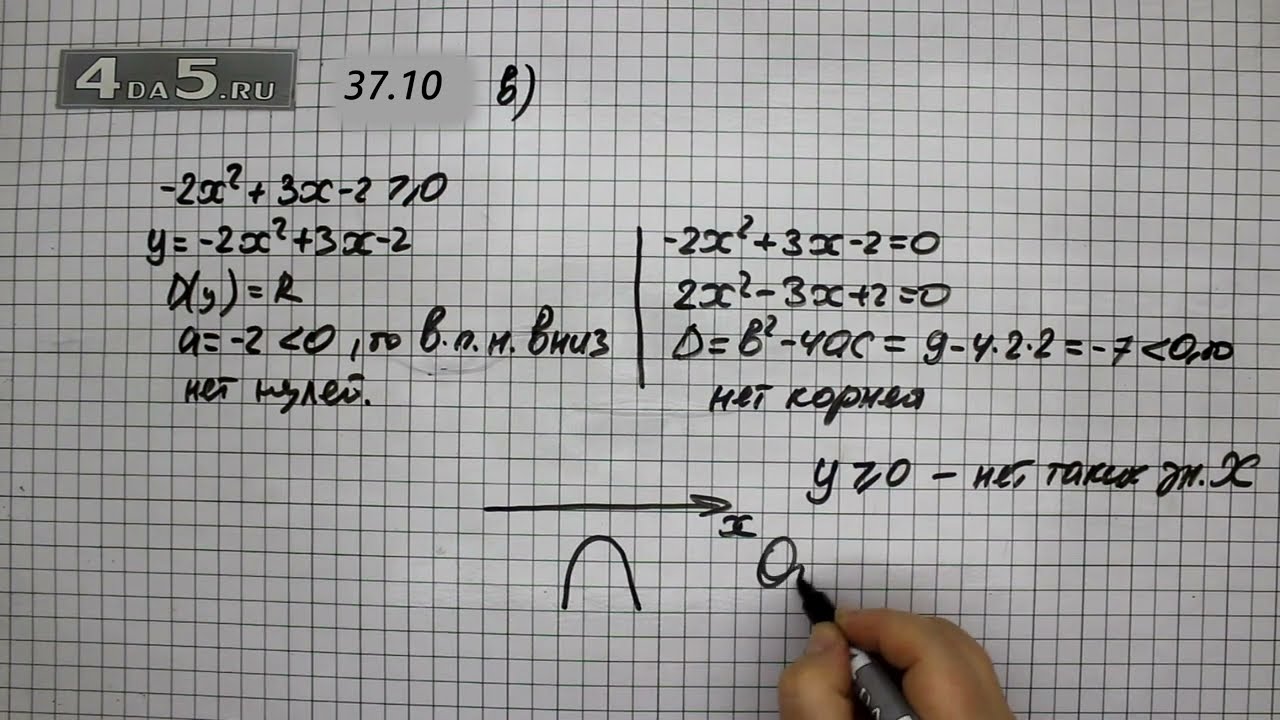 4DA5.RU 37.10 в)
-2x² + 3x - 2 ⩾ 0
y = -2x² + 3x - 2
D(y) = R
a = -2 < 0, то в.п.н. вниз
нет нулей.
-2x² + 3x - 2 = 0
2x² - 3x + 2 = 0
D = b² - 4ac = 9 - 4·2·2 = -7 < 0, то
нет корней
y ⩾ 0 - нет таких зн. X
x